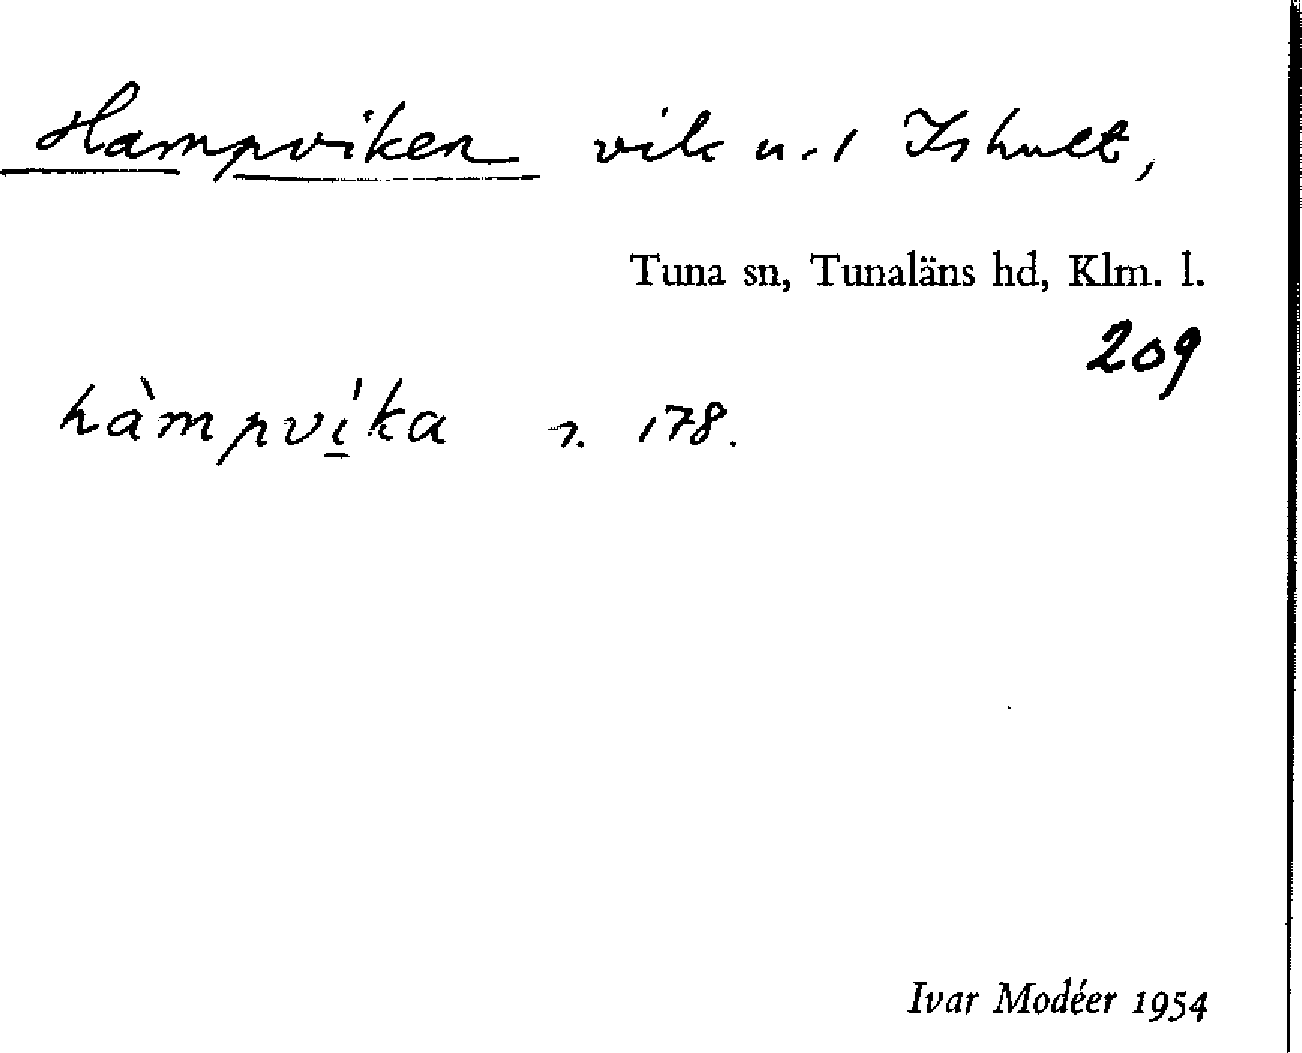 Hampviken vik u. I Ishult,
Tuna sn, Tunaläns hd, Klm. l.
209
hàmpví̲ka s. 178.
Ivar Modéer 1954